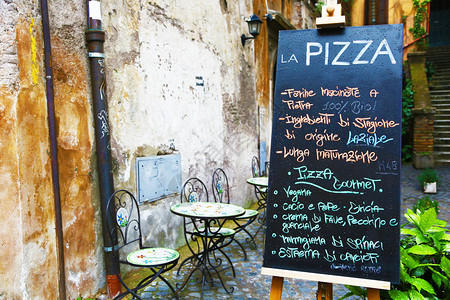 LA PIZZA
- FARINE MACINATE A
PIETRA 100% BIO!
- INGREDIENTI DI STAGIONE
DI ORIGINE LAZIALE
- LUNGA MATURAZIONE
PIZZA
GOURMET
VEGANA
CACIO e PEPE
CREMA DI FAVE, PECORINO e
GUANCIALE
PARMIGIANA DI SPINACI